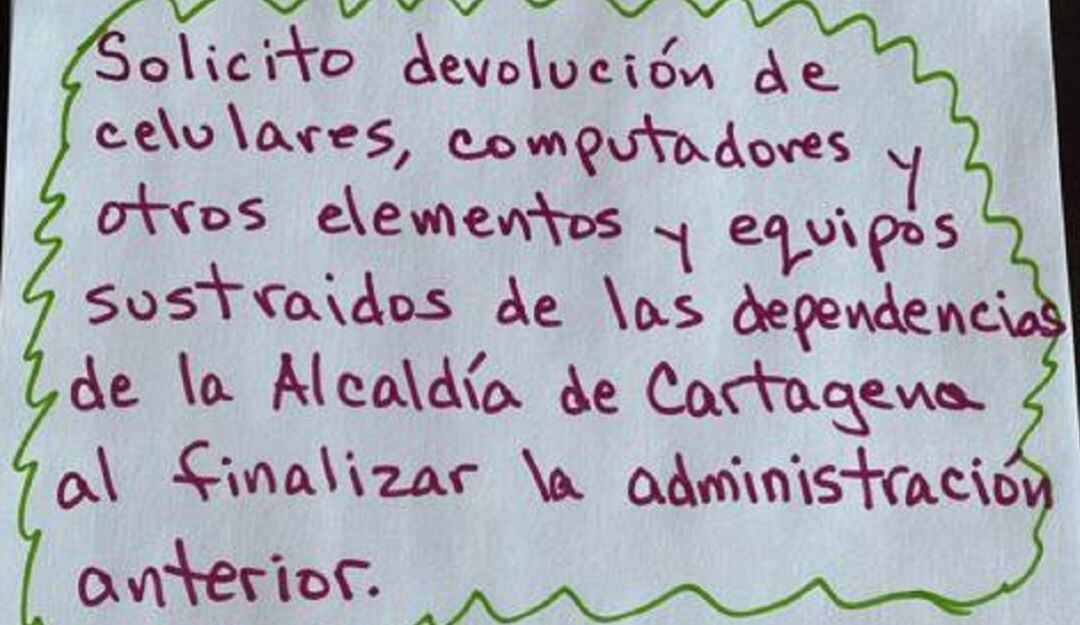 Solicito devolución de
celulares, computadores y
otros elementos y equipos
sustraidos de las dependencias
de la Alcaldía de Cartagena
al finalizar la administración
anterior.